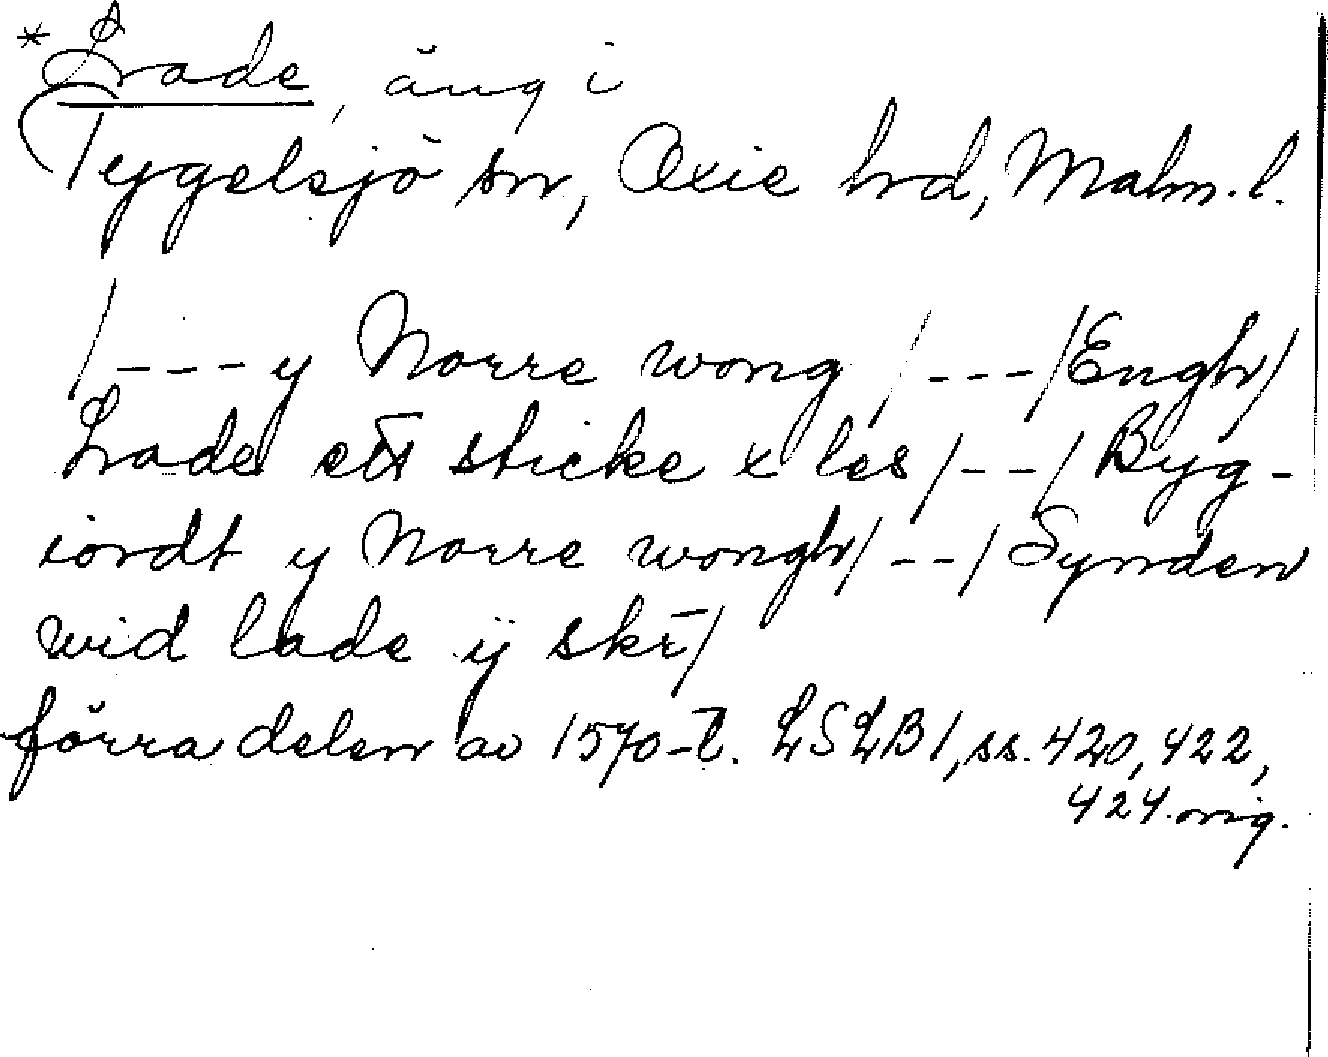 *Lade, äng i
Tygelsjö sn, Oxie hrd, Malm. l.
/--- y Norre wong /---/ Engh/
Lade ett sticke x les /--/ Byg-
iordt y Norre wongh /--/ Synden
wid lade ÿ skr̄/
förra delen av 1570-t. LSLB1, ss. 420, 422,
424. orig.